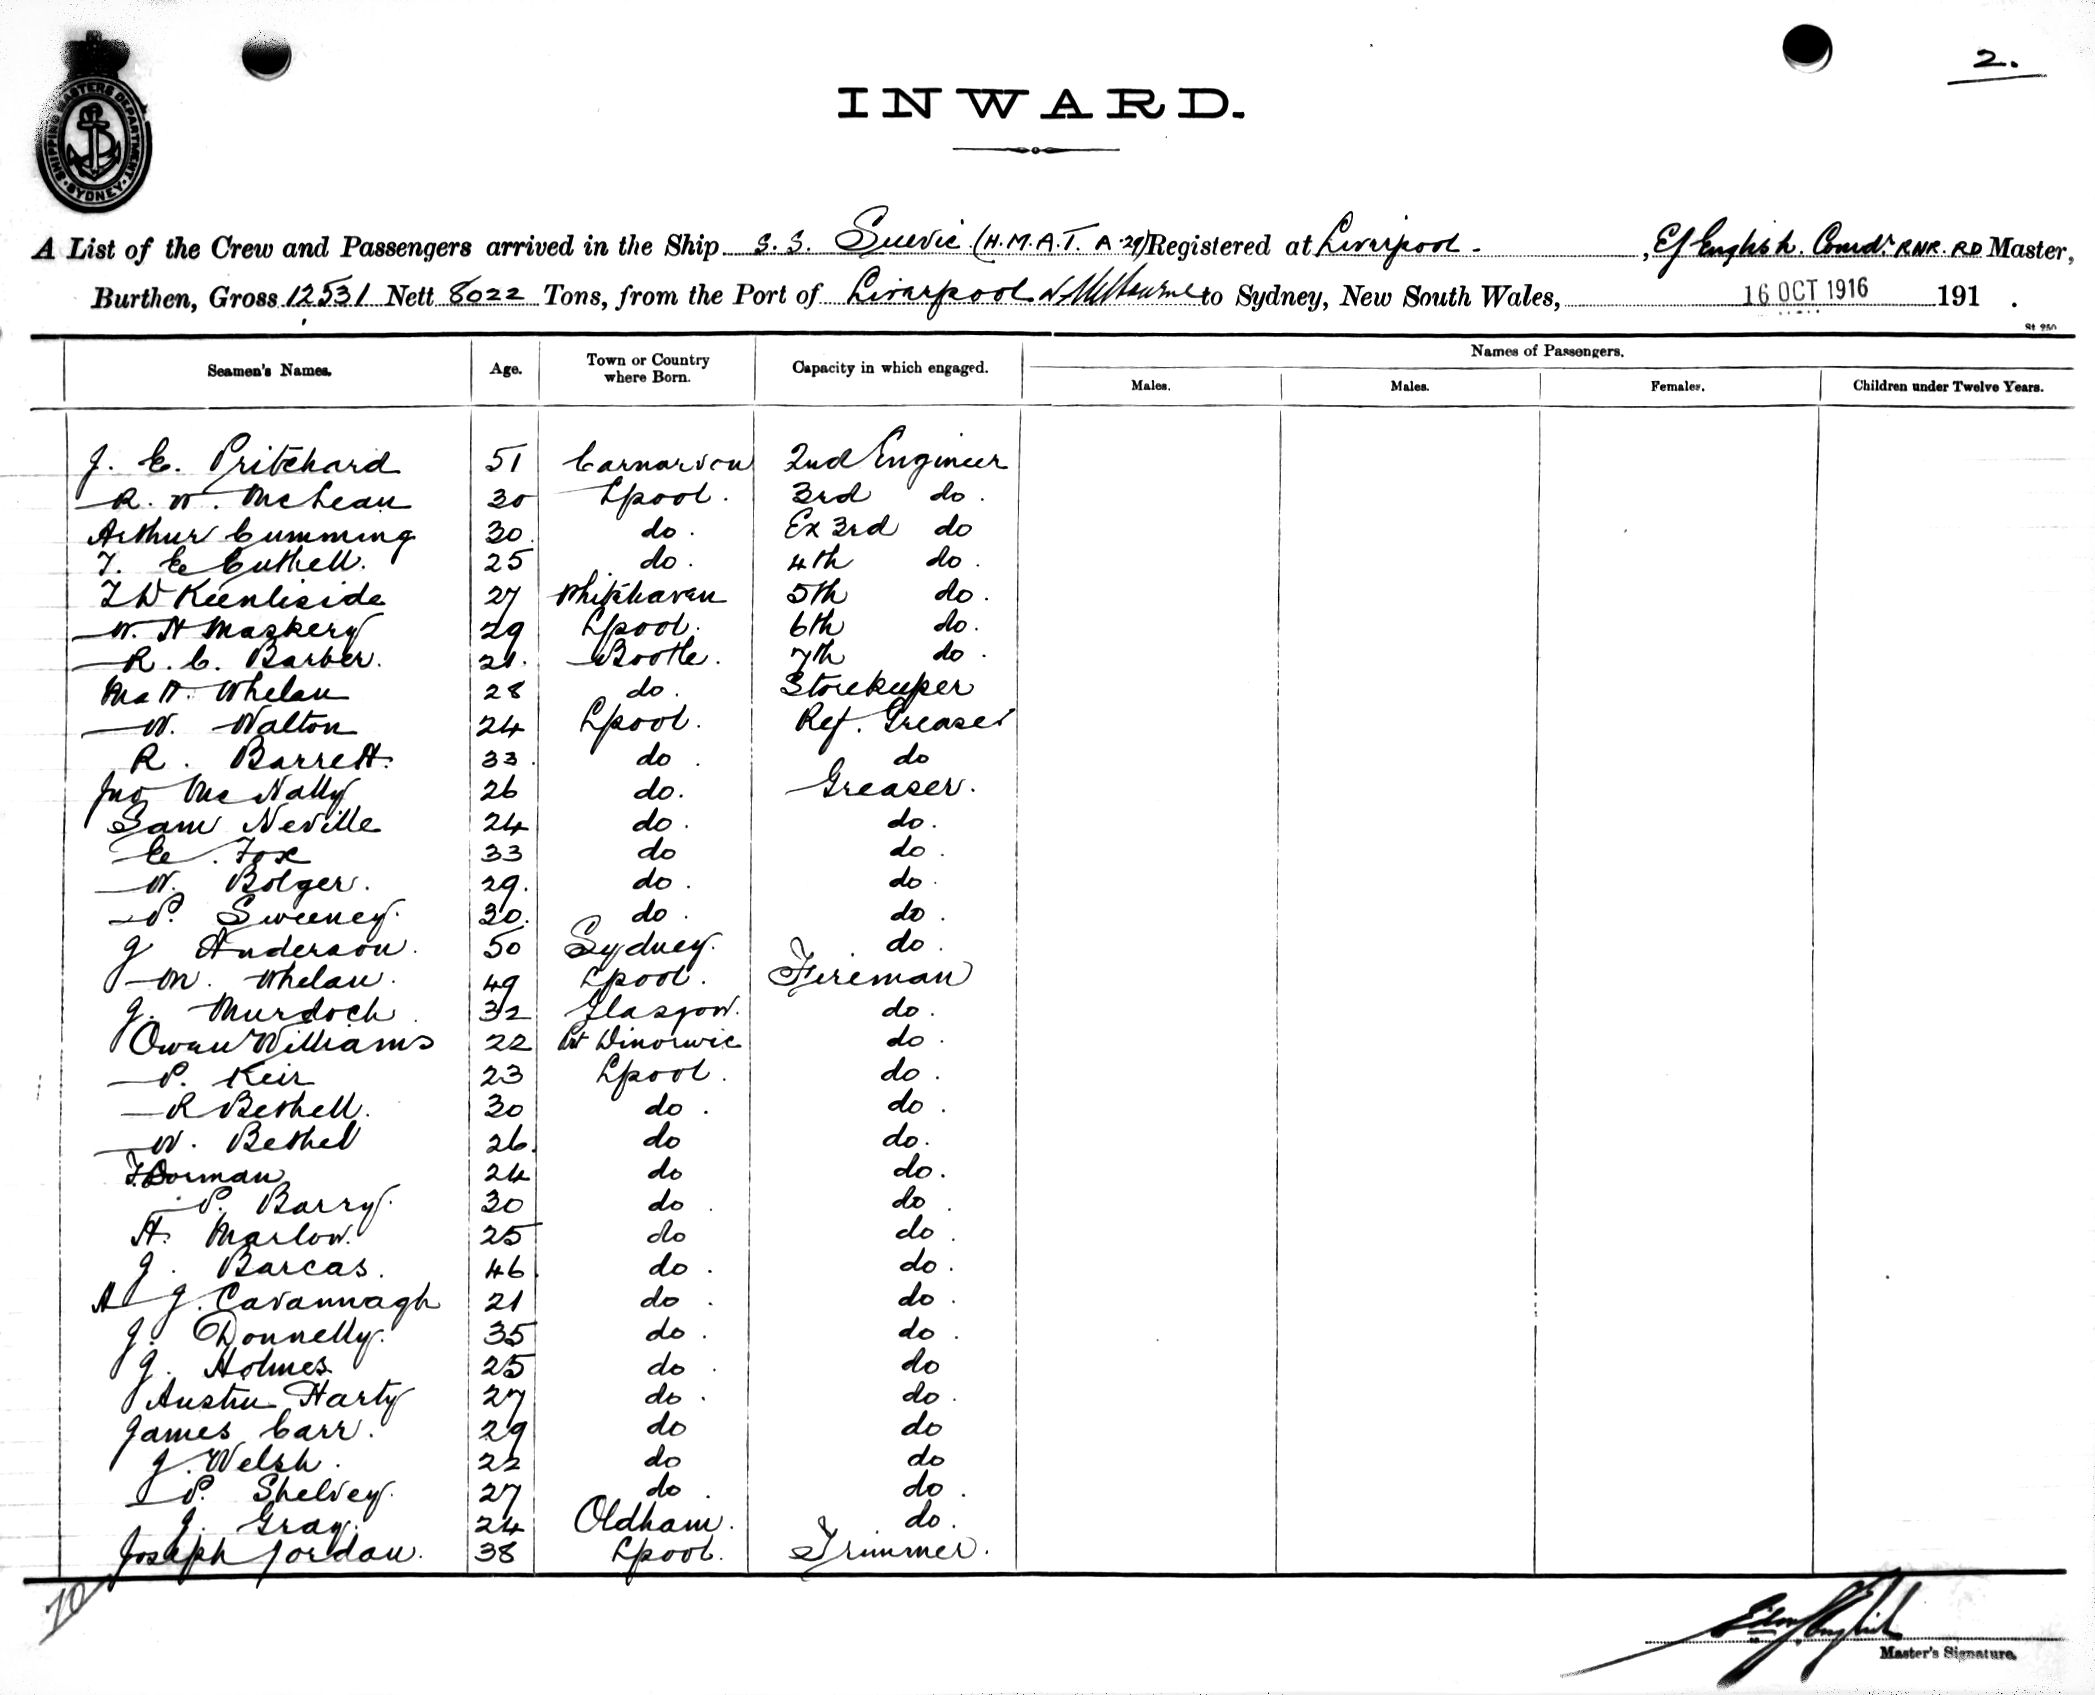 2.
SHIPPING MASTERS DEPARTMENT SYDNEY
INWARD.
A List of the Crew and Passengers arrived in the Ship S.S. Suevic (H.M.A.T. A.29) Registered at Liverpool, E J English. Comdr. RNR. RD Master,
Burthen, Gross 12531 Nett 8022 Tons, from the Port of Liverpool to Sydney, New South Wales, 16 OCT 1916 191 .
St 250
Seamen's Names. Age. Town or Country where Born. Capacity in which engaged. Names of Passengers.
Males. Males. Females. Children under Twelve Years.
J. E. Pritchard 51 Carnarvon 2nd Engineer
R. W. McLean 30 Lpool. 3rd do.
Arthur Cumming 30. do. Ex 3rd do
T. E Cuthell. 25 do. 4th do.
Keenliside 27 Whitehaven 5th do.
W. H Maskery 29 Lpool. 6th do.
R. C. Barber. 21. Bootle. 7th do.
Matt. Whelan 28 do. Storekeeper
W. Walton 24 Lpool. Ref. Greaser
R. Barrett. 33. do. do
Jno McNally 26 do. Greaser.
Sam Neville 24 do. do.
E. Fox 33 do do.
W. Bolger. 29. do. do.
P. Sweeney. 30. do. do.
J Anderson. 50 Sydney. do.
M. Whelan. 49 Lpool. Fireman
J. Murdoch. 32 Glasgow. do.
Owen Williams 22 Pt Dinorwic do.
P. Keir 23 Lpool. do.
R Bethell. 30 do. do.
W. Bethel 26. do do.
F. Dorman 24 do do.
P. Barry. 30 do. do.
H. Marlow. 25 do do.
J. Barcas. 46. do. do.
A J. Cavannagh 21 do. do.
J. Donnelly. 35 do. do.
J. Holmes. 25 do. do
Austin Harty 27 do. do.
James Carr. 29 do do
J. Welsh. 22 do do
P. Shelvey. 27 do. do.
J. Gray. 24 Oldham. do.
Joseph Jordan. 38 Lpool. Trimmer.
Master's Signature.